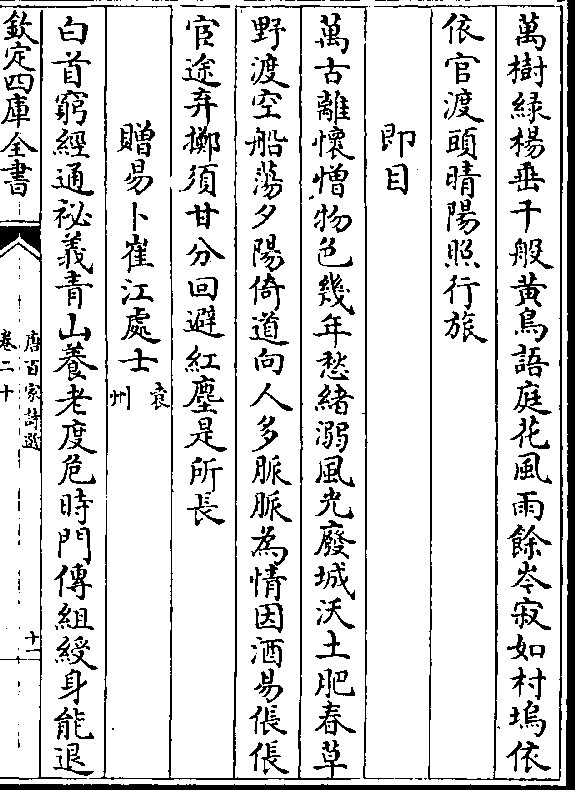 萬樹綠楊垂千般黃鳥語庭花風雨餘岑寂如村塢依
依官渡頭晴陽照行旅
即目
萬古離懷憎物色幾年愁緒溺風光廢城沃土肥春草
野渡空船蕩夕陽倚道向人多脈脈為情因酒易倀倀
宦途弃擲須甘分回避紅塵是所長
贈易卜崔江處士袁州
白首窮經通祕義青山養老度危時門傳組綬身能退
欽定四庫全書
唐百家詩選
卷二十
十一